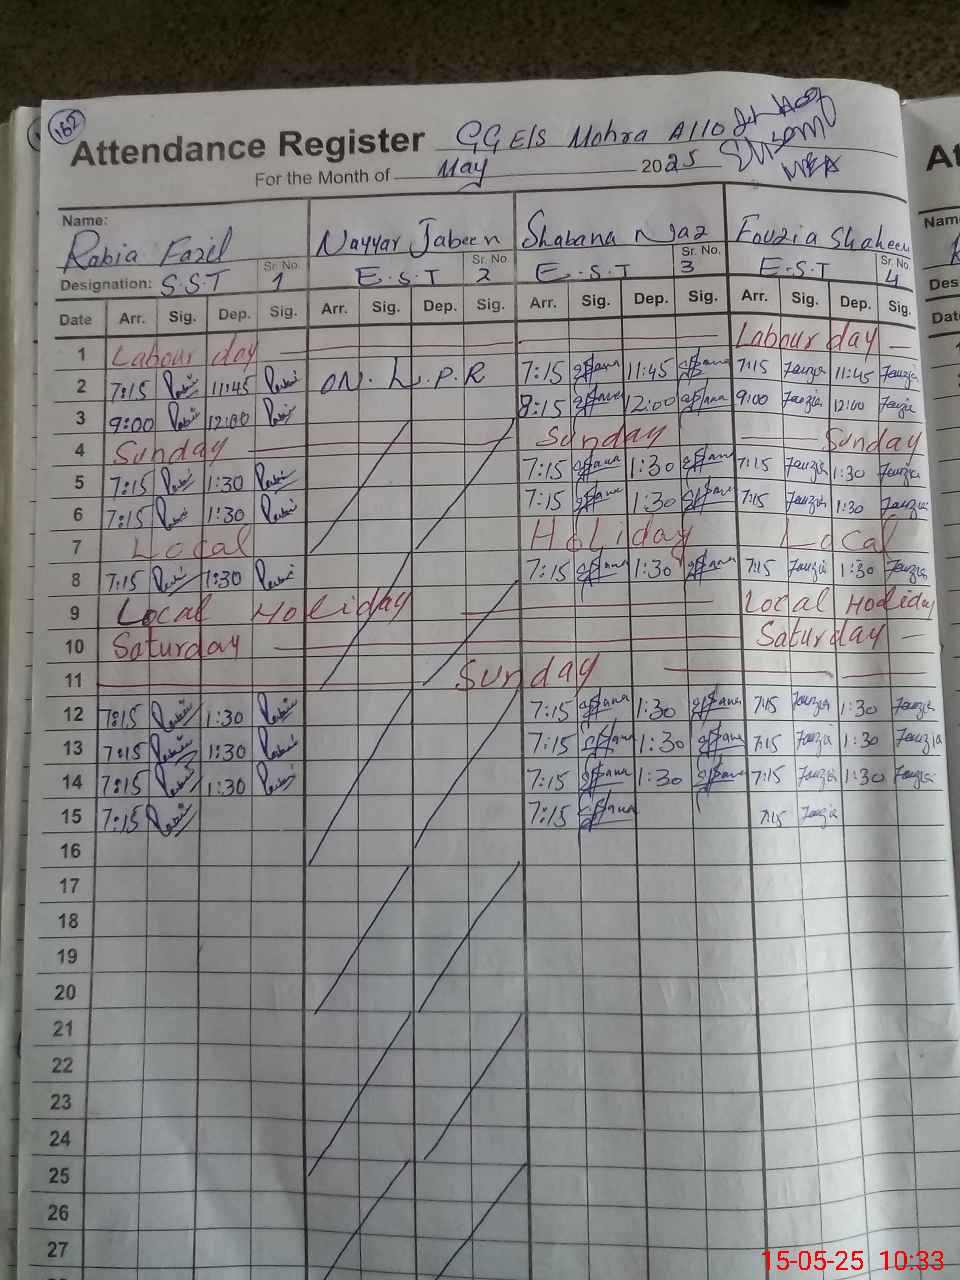 162
Attendance Register GGE/S Mohra Allo
For the Month of May 2025 MEA
Name:
Rabia Fazil Nayyar Jabeen Shabana Naz Fouzia Shaheen
Sr. No. Sr. No. Sr. No. Sr. No.
Designation: S.S.T 1 E.S.T 2 E.S.T 3 E.S.T 4
Date Arr. Sig. Dep. Sig. Arr. Sig. Dep. Sig. Arr. Sig. Dep. Sig. Arr. Sig. Dep. Sig.
1 Labour day Labour day
2 7:15 Rabia 11:45 Rabia ON. L.P.R 7:15 11:45 7:15 Fouzia 11:45 Fouzia
3 9:00 Rabia 12:00 Rabia 12:00 9:00 Fouzia 12:00 Fouzia
4 Sunday Sunday Sunday
5 7:15 Rabia 1:30 Rabia 7:15 1:30 7:15 Fouzia 1:30 Fouzia
6 7:15 Rabia 1:30 Rabia 7:15 1:30 7:15 Fouzia 1:30 Fouzia
7 Local Holiday Local
8 7:15 Rabia 1:30 Rabia 7:15 1:30 7:15 Fouzia 1:30 Fouzia
9 Local Holiday Local Holiday
10 Saturday Saturday
11 Sunday
12 7:15 Rabia 1:30 Rabia 7:15 1:30 7:15 Fouzia 1:30 Fouzia
13 7:15 Rabia 1:30 Rabia 7:15 1:30 7:15 Fouzia 1:30 Fouzia
14 7:15 Rabia 1:30 Rabia 7:15 1:30 7:15 Fouzia 1:30 Fouzia
15 7:15 Rabia 7:15 7:15 Fouzia
16
17
18
19
20
21
22
23
24
25
26
27
15-05-25 10:33